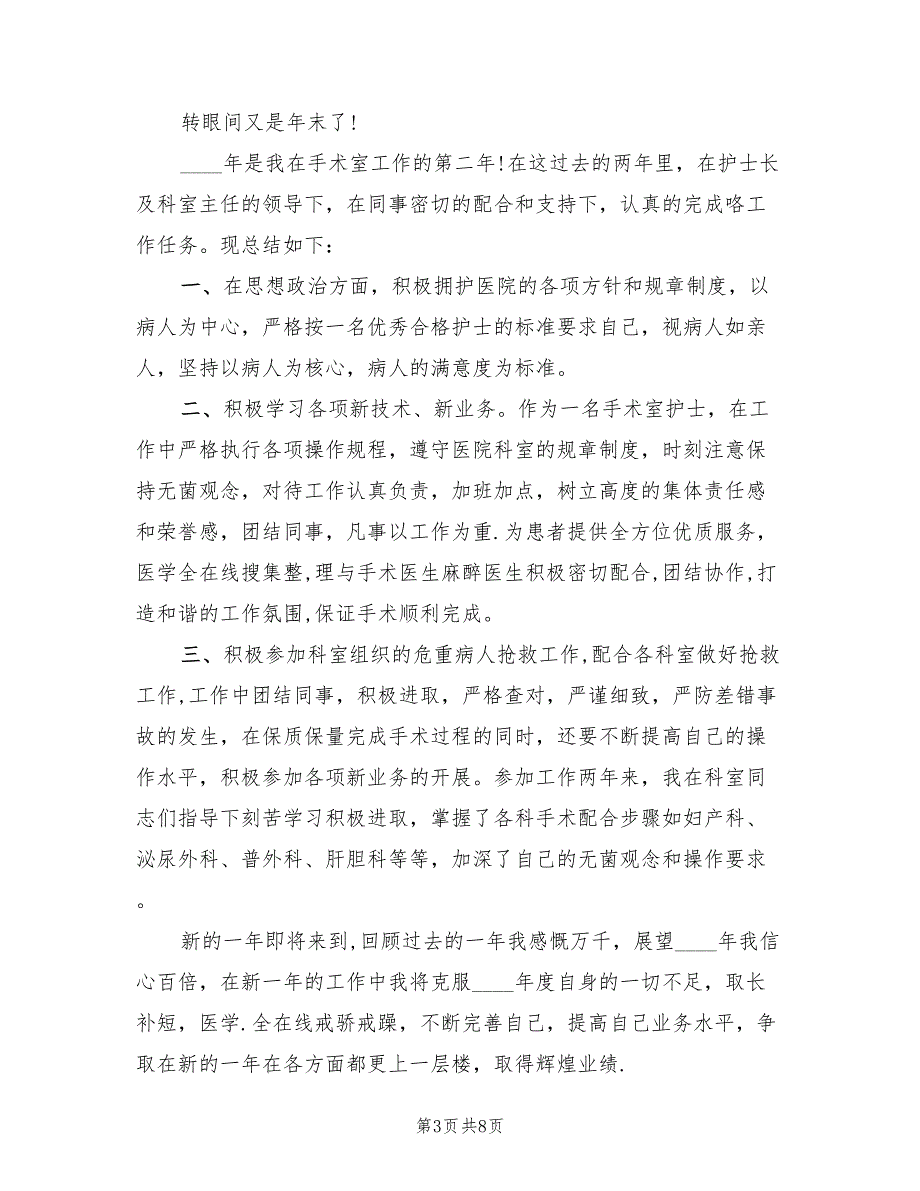 转眼间又是年末了!
____年是我在手术室工作的第二年!在这过去的两年里，在护士长
及科室主任的领导下，在同事密切的配合和支持下，认真的完成咯工
作任务。现总结如下：
一、在思想政治方面，积极拥护医院的各项方针和规章制度，以
病人为中心，严格按一名优秀合格护士的标准要求自己，视病人如亲
人，坚持以病人为核心，病人的满意度为标准。
二、积极学习各项新技术、新业务。作为一名手术室护士，在工
作中严格执行各项操作规程，遵守医院科室的规章制度，时刻注意保
持无菌观念，对待工作认真负责，加班加点，树立高度的集体责任感
和荣誉感，团结同事，凡事以工作为重.为患者提供全方位优质服务，
医学全在线搜集整,理与手术医生麻醉医生积极密切配合,团结协作,打
造和谐的工作氛围,保证手术顺利完成。
三、积极参加科室组织的危重病人抢救工作,配合各科室做好抢救
工作,工作中团结同事，积极进取，严格查对，严谨细致，严防差错事
故的发生，在保质保量完成手术过程的同时，还要不断提高自己的操
作水平，积极参加各项新业务的开展。参加工作两年来，我在科室同
志们指导下刻苦学习积极进取，掌握了各科手术配合步骤如妇产科、
泌尿外科、普外科、肝胆科等等，加深了自己的无菌观念和操作要求
。
新的一年即将来到,回顾过去的一年我感慨万千，展望____年我信
心百倍，在新一年的工作中我将克服____年度自身的一切不足，取长
补短，医学.全在线戒骄戒躁，不断完善自己，提高自己业务水平，争
取在新的一年在各方面都更上一层楼，取得辉煌业绩.
第3页 共8页